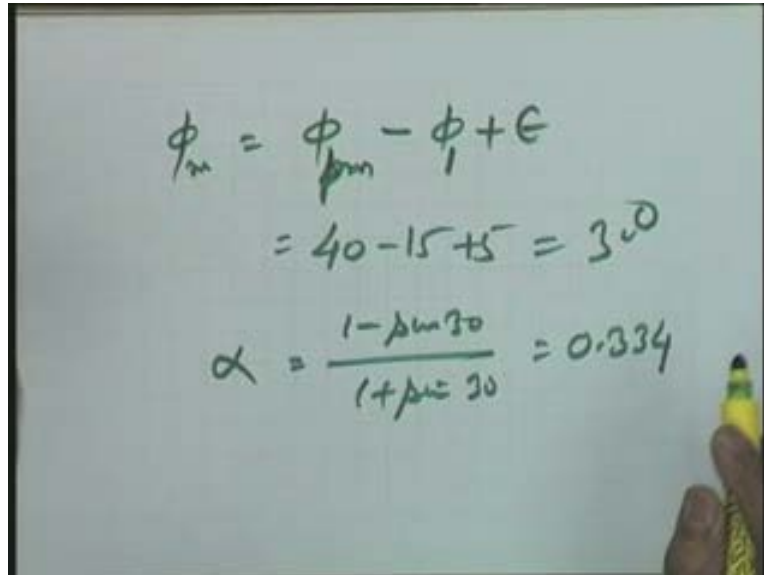 ϕₘ = ϕₚₘ - ϕ₁ + ϵ
= 40 - 15 + 5 = 30
α = (1 - sin 30) / (1 + sin 30) = 0.334